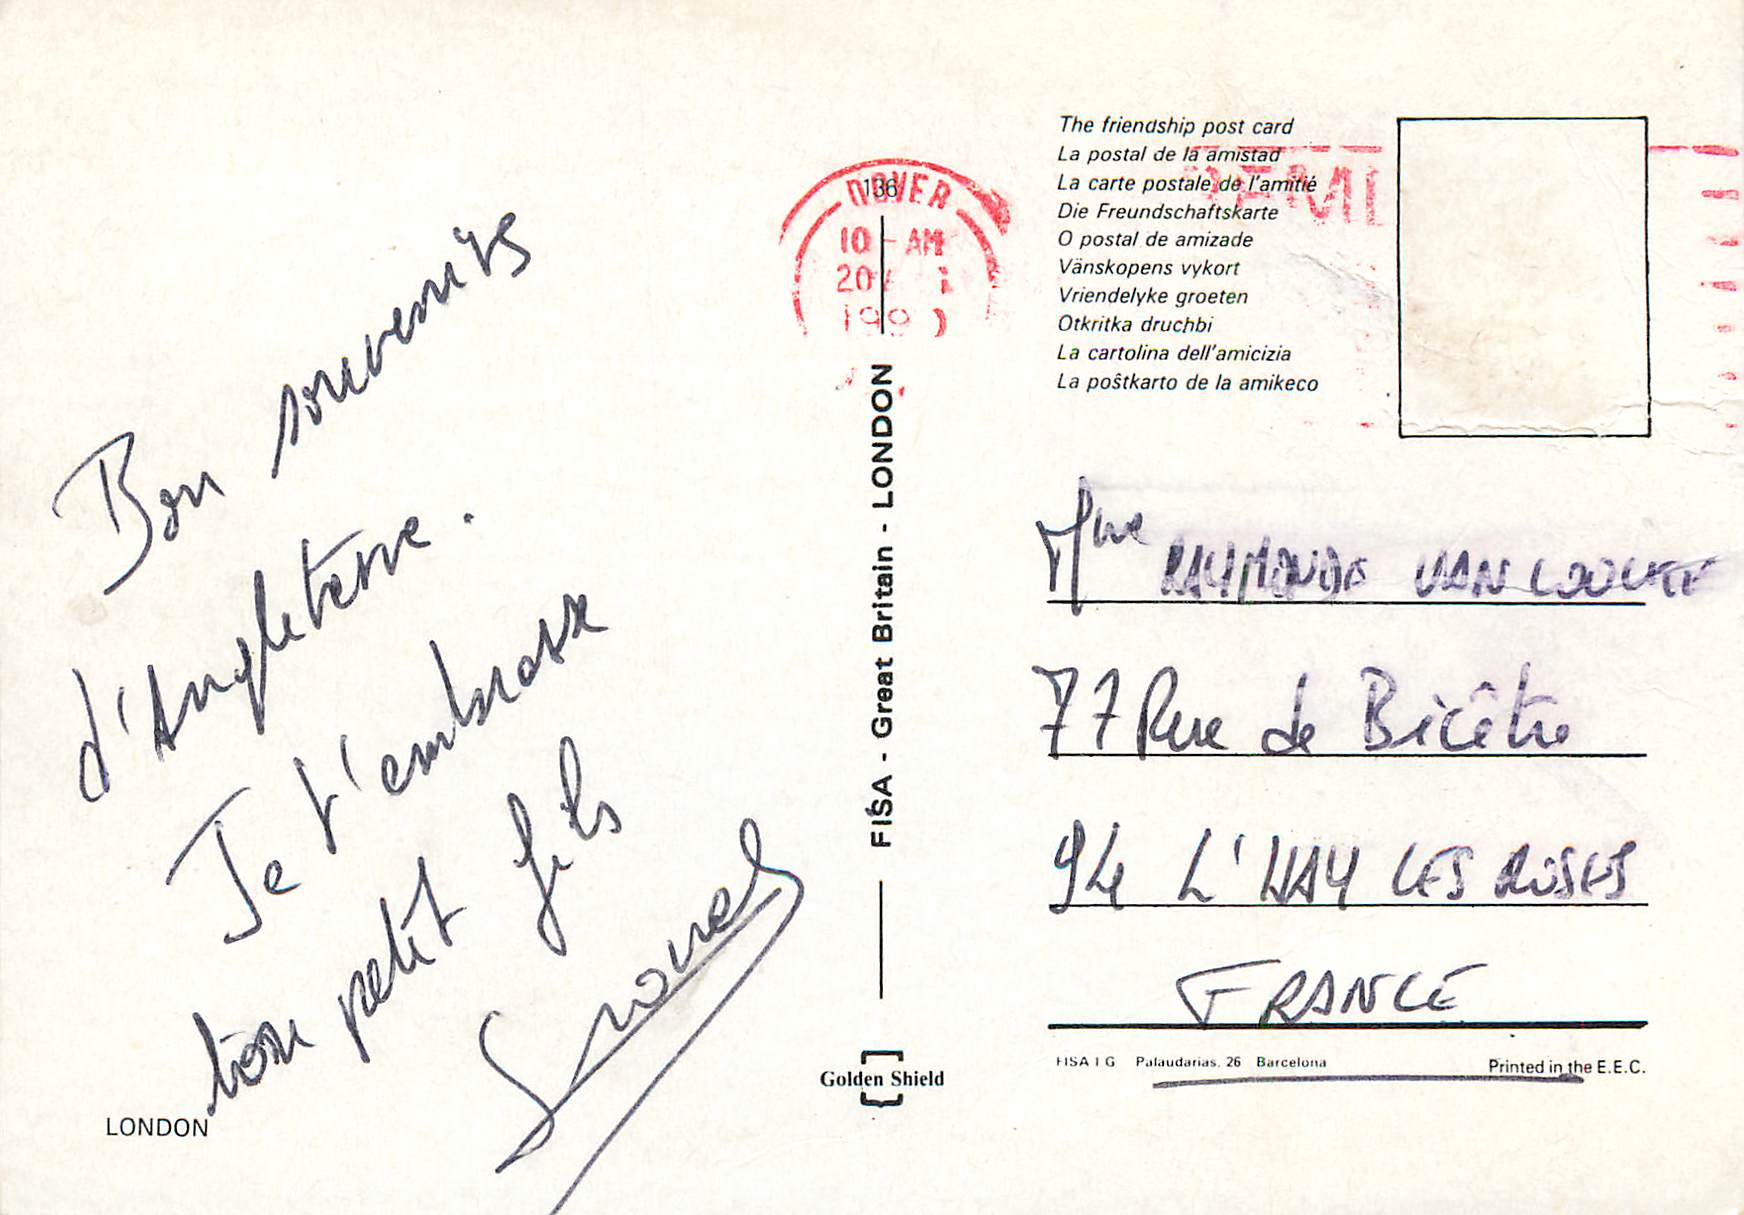 Bon souvenirs
d'Angleterre.
Je t'embrasse
ton petit fils
LONDON
136
DOVER
10 - AM
20
FISA - Great Britain - LONDON
Golden Shield
The friendship post card
La postal de la amistad
La carte postale de l'amitié
Die Freundschaftskarte
O postal de amizade
Vänskopens vykort
Vriendelyke groeten
Otkritka druchbi
La cartolina dell'amicizia
La poŝtkarto de la amikeco
Mme RAYMONDE VAN
77 Rue de Bicêtre
94 L'HAY LES ROSES
FRANCE
FISA I G Palaudarias, 26 Barcelona
Printed in the E.E.C.